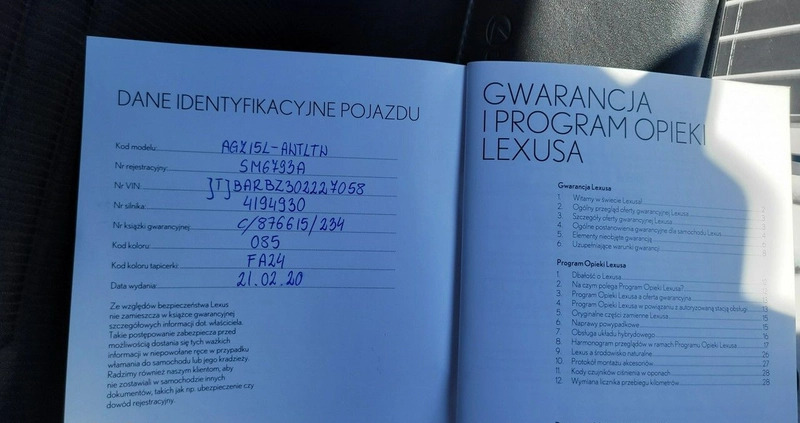 DANE IDENTYFIKACYJNE POJAZDU
Kod modelu: AGZ15L-ANTLTN
Nr rejestracyjny: SM6793A
Nr VIN: JTJBARBZ302227058
Nr silnika: 4194930
Nr książki gwarancyjnej: C/876615/234
Kod koloru: 085
Kod koloru tapicerki: FA24
Data wydania: 21.02.20
Ze względów bezpieczeństwa Lexus
nie zamieszcza w książce gwarancyjnej
szczegółowych informacji dot. właściciela.
Takie postępowanie zabezpiecza przed
możliwością dostania się tych ważkich
informacji w niepowołane ręce w przypadku
włamania do samochodu lub jego kradzieży.
Radzimy również naszym klientom, aby
nie zostawiali w samochodzie innych
dokumentów, takich jak np. ubezpieczenie czy
dowód rejestracyjny.
GWARANCJA
I PROGRAM OPIEKI
LEXUSA
Gwarancja Lexusa
1. Witamy w świecie Lexusa!
2. Ogólny przegląd oferty gwarancyjnej Lexusa 2
3. Szczegóły oferty gwarancyjnej Lexusa
4. Ogólne postanowienia gwarancyjne dla samochodu Lexus
5. Elementy nieobjęte gwarancją
6. Uzupełniające warunki gwarancji
Program Opieki Lexusa
1. Dbałość o Lexusa
2. Na czym polega Program Opieki Lexusa?
3. Program Opieki Lexusa a oferta gwarancyjna
4. Program Opieki Lexusa w powiązaniu z autoryzowaną stacją obsługi 13
5. Oryginalne części zamienne Lexusa 15
6. Naprawy powypadkowe 15
7. Obsługa układu hybrydowego 16
8. Harmonogram przeglądów w ramach Programu Opieki Lexusa 17
9. Lexus a środowisko naturalne 26
10. Protokół montażu akcesoriów 27
11. Kody czujników ciśnienia w oponach 28
12. Wymiana licznika przebiegu kilometrów 28